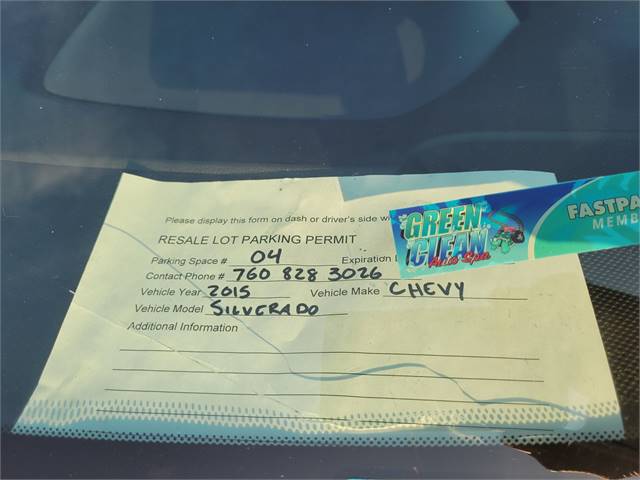 Please display this form on dash or driver's side
RESALE LOT PARKING PERMIT
Parking Space # 04 Expiration
Contact Phone # 760 828 3026
Vehicle Year 2015 Vehicle Make CHEVY
Vehicle Model SILVERADO
Additional Information
GREEN
CLEAN
Auto Spa